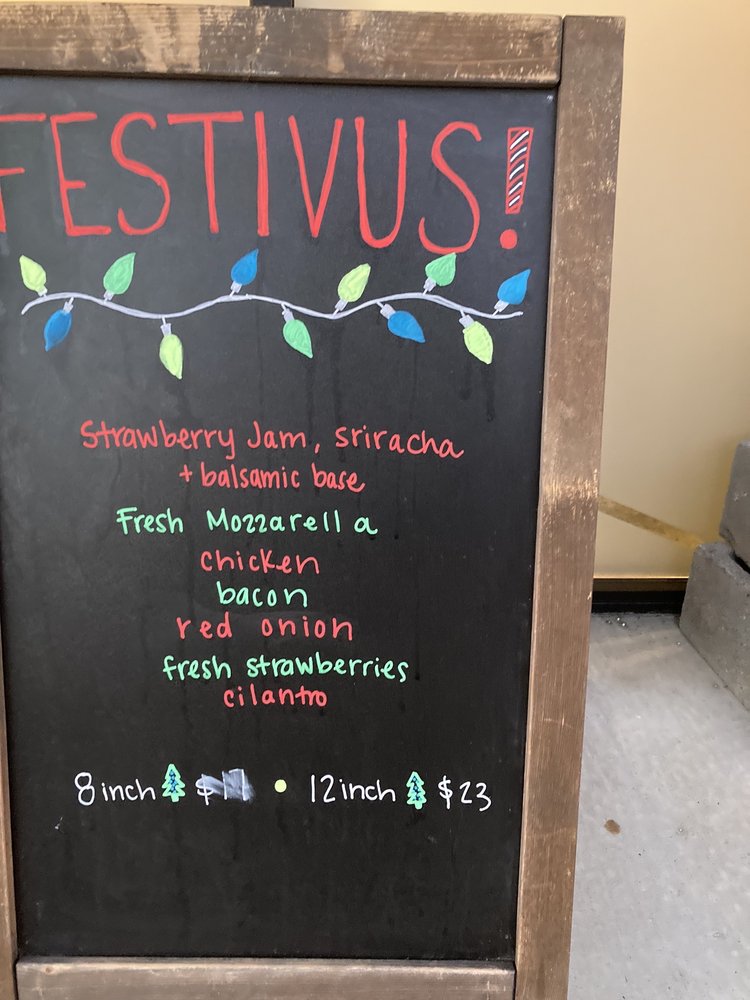 FESTIVUS!
Strawberry Jam, sriracha
+ balsamic base
Fresh Mozzarella
chicken
bacon
red onion
fresh strawberries
cilantro
8inch • 12inch $23